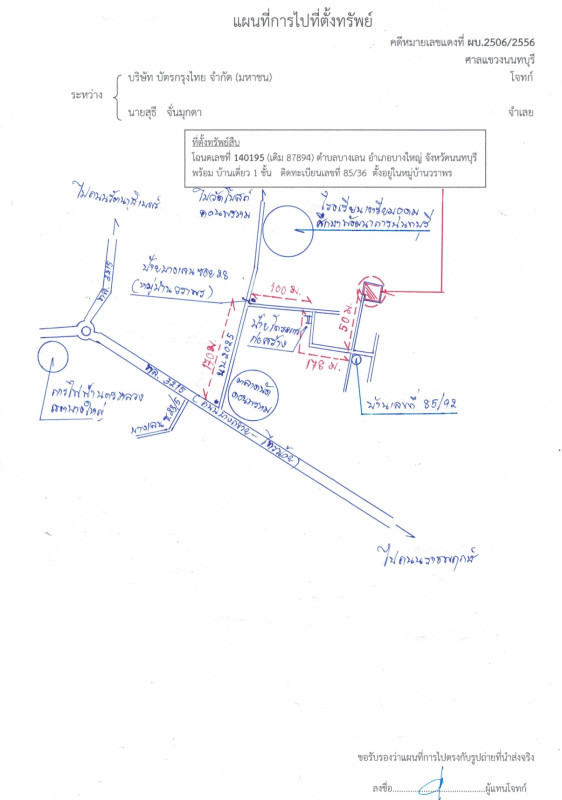 แผนที่การไปที่ตั้งทรัพย์
คดีหมายเลขแดงที่ ผบ.2506/2556
ศาลแขวงนนทบุรี
บริษัท บัตรกรุงไทย จำกัด (มหาชน) โจทก์
ระหว่าง
นายสุธี จั่นมุกดา จำเลย
ที่ตั้งทรัพย์สิน
โฉนดเลขที่ 140195 (เดิม 87894) ตำบลบางเลน อำเภอบางใหญ่ จังหวัดนนทบุรี
พร้อม บ้านเดี่ยว 1 ชั้น ติดทะเบียนเลขที่ 85/36 ตั้งอยู่ในหมู่บ้านวราพร
ไปถนนรัตนาธิเบศร์
ไปวัดโมลี
ดอนพรหม
โรงเรียนเตรียมอุดม
ศึกษาพัฒนาการนนทบุรี
ทล. 3215
ป้ายบางเลน ซอย 28
(หมู่บ้านวราพร)
100 ม.
50 ม.
170 ม.
นบ.2025
ป้ายโครงการ
ก่อสร้าง
178 ม.
การไฟฟ้านครหลวง
เขตบางใหญ่
ทล. 3215 (ถนนบางกรวย - ไทรน้อย)
บางเลน ซอย
ตลาดนัด
ดอนพรหม
บ้านเลขที่ 85/92
ไปถนนราชพฤกษ์
ขอรับรองว่าแผนที่การไปตรงกับรูปถ่ายที่นำส่งจริง
ลงชื่อ........................ผู้แทนโจทก์